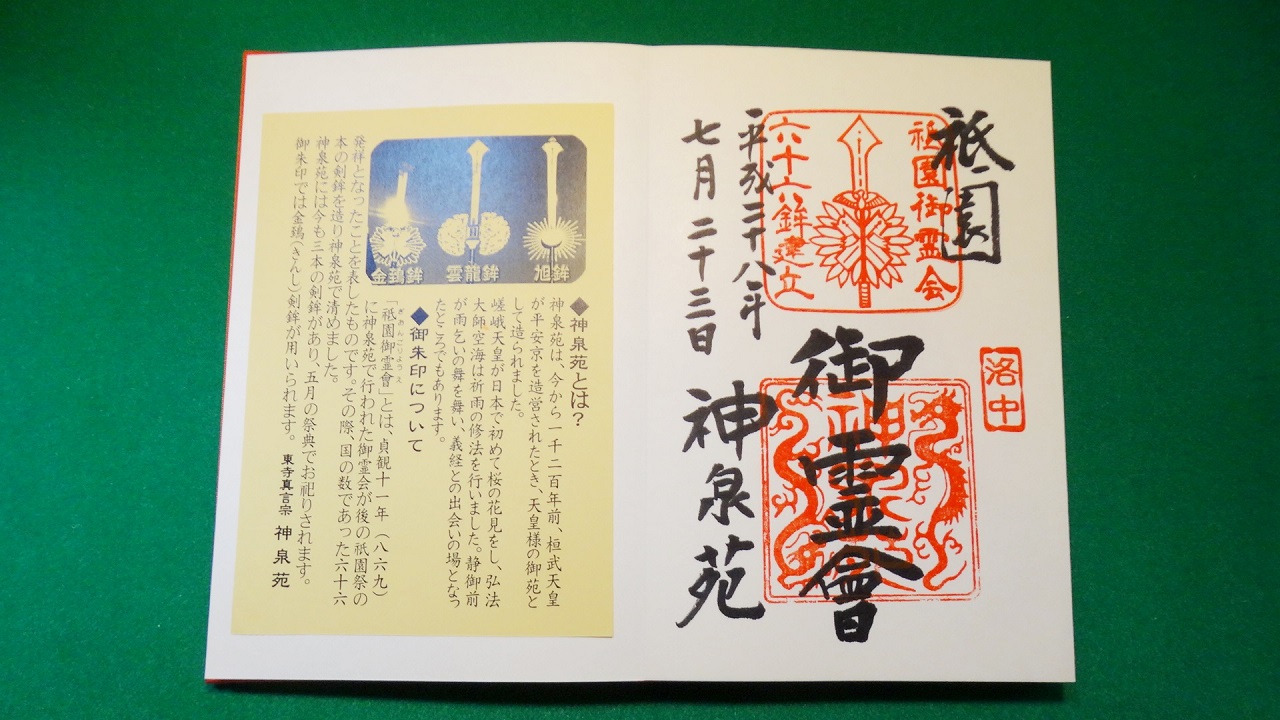 祇園
御霊會
祇園御霊会
六十六鉾建立
洛中
平成二十八年
七月二十三日
神泉苑
旭鉾
雲龍鉾
金鵄鉾
◆神泉苑とは?
神泉苑は、今から一千二百年前、桓武天皇
が平安京を造営されたとき、天皇様の御苑と
して造られました。
嵯峨天皇が日本で初めて桜の花見をし、弘法
大師空海は祈雨の修法を行いました。静御前
が雨乞いの舞を舞い、義経との出会いの場となっ
たところでもあります。
◆御朱印について
「祇園御霊會」とは、貞観十一年(八六九)
ぎおんごりょうえ
に神泉苑で行われた御霊会が後の祇園祭の
発祥となったことを表したものです。その際、国の数であった六十六
本の剣鉾を造り神泉苑で清めました。
神泉苑には今も三本の剣鉾があり、五月の祭典でお祀りされます。
御朱印では金鵄(きんし)剣鉾が用いられます。
東寺真言宗 神泉苑